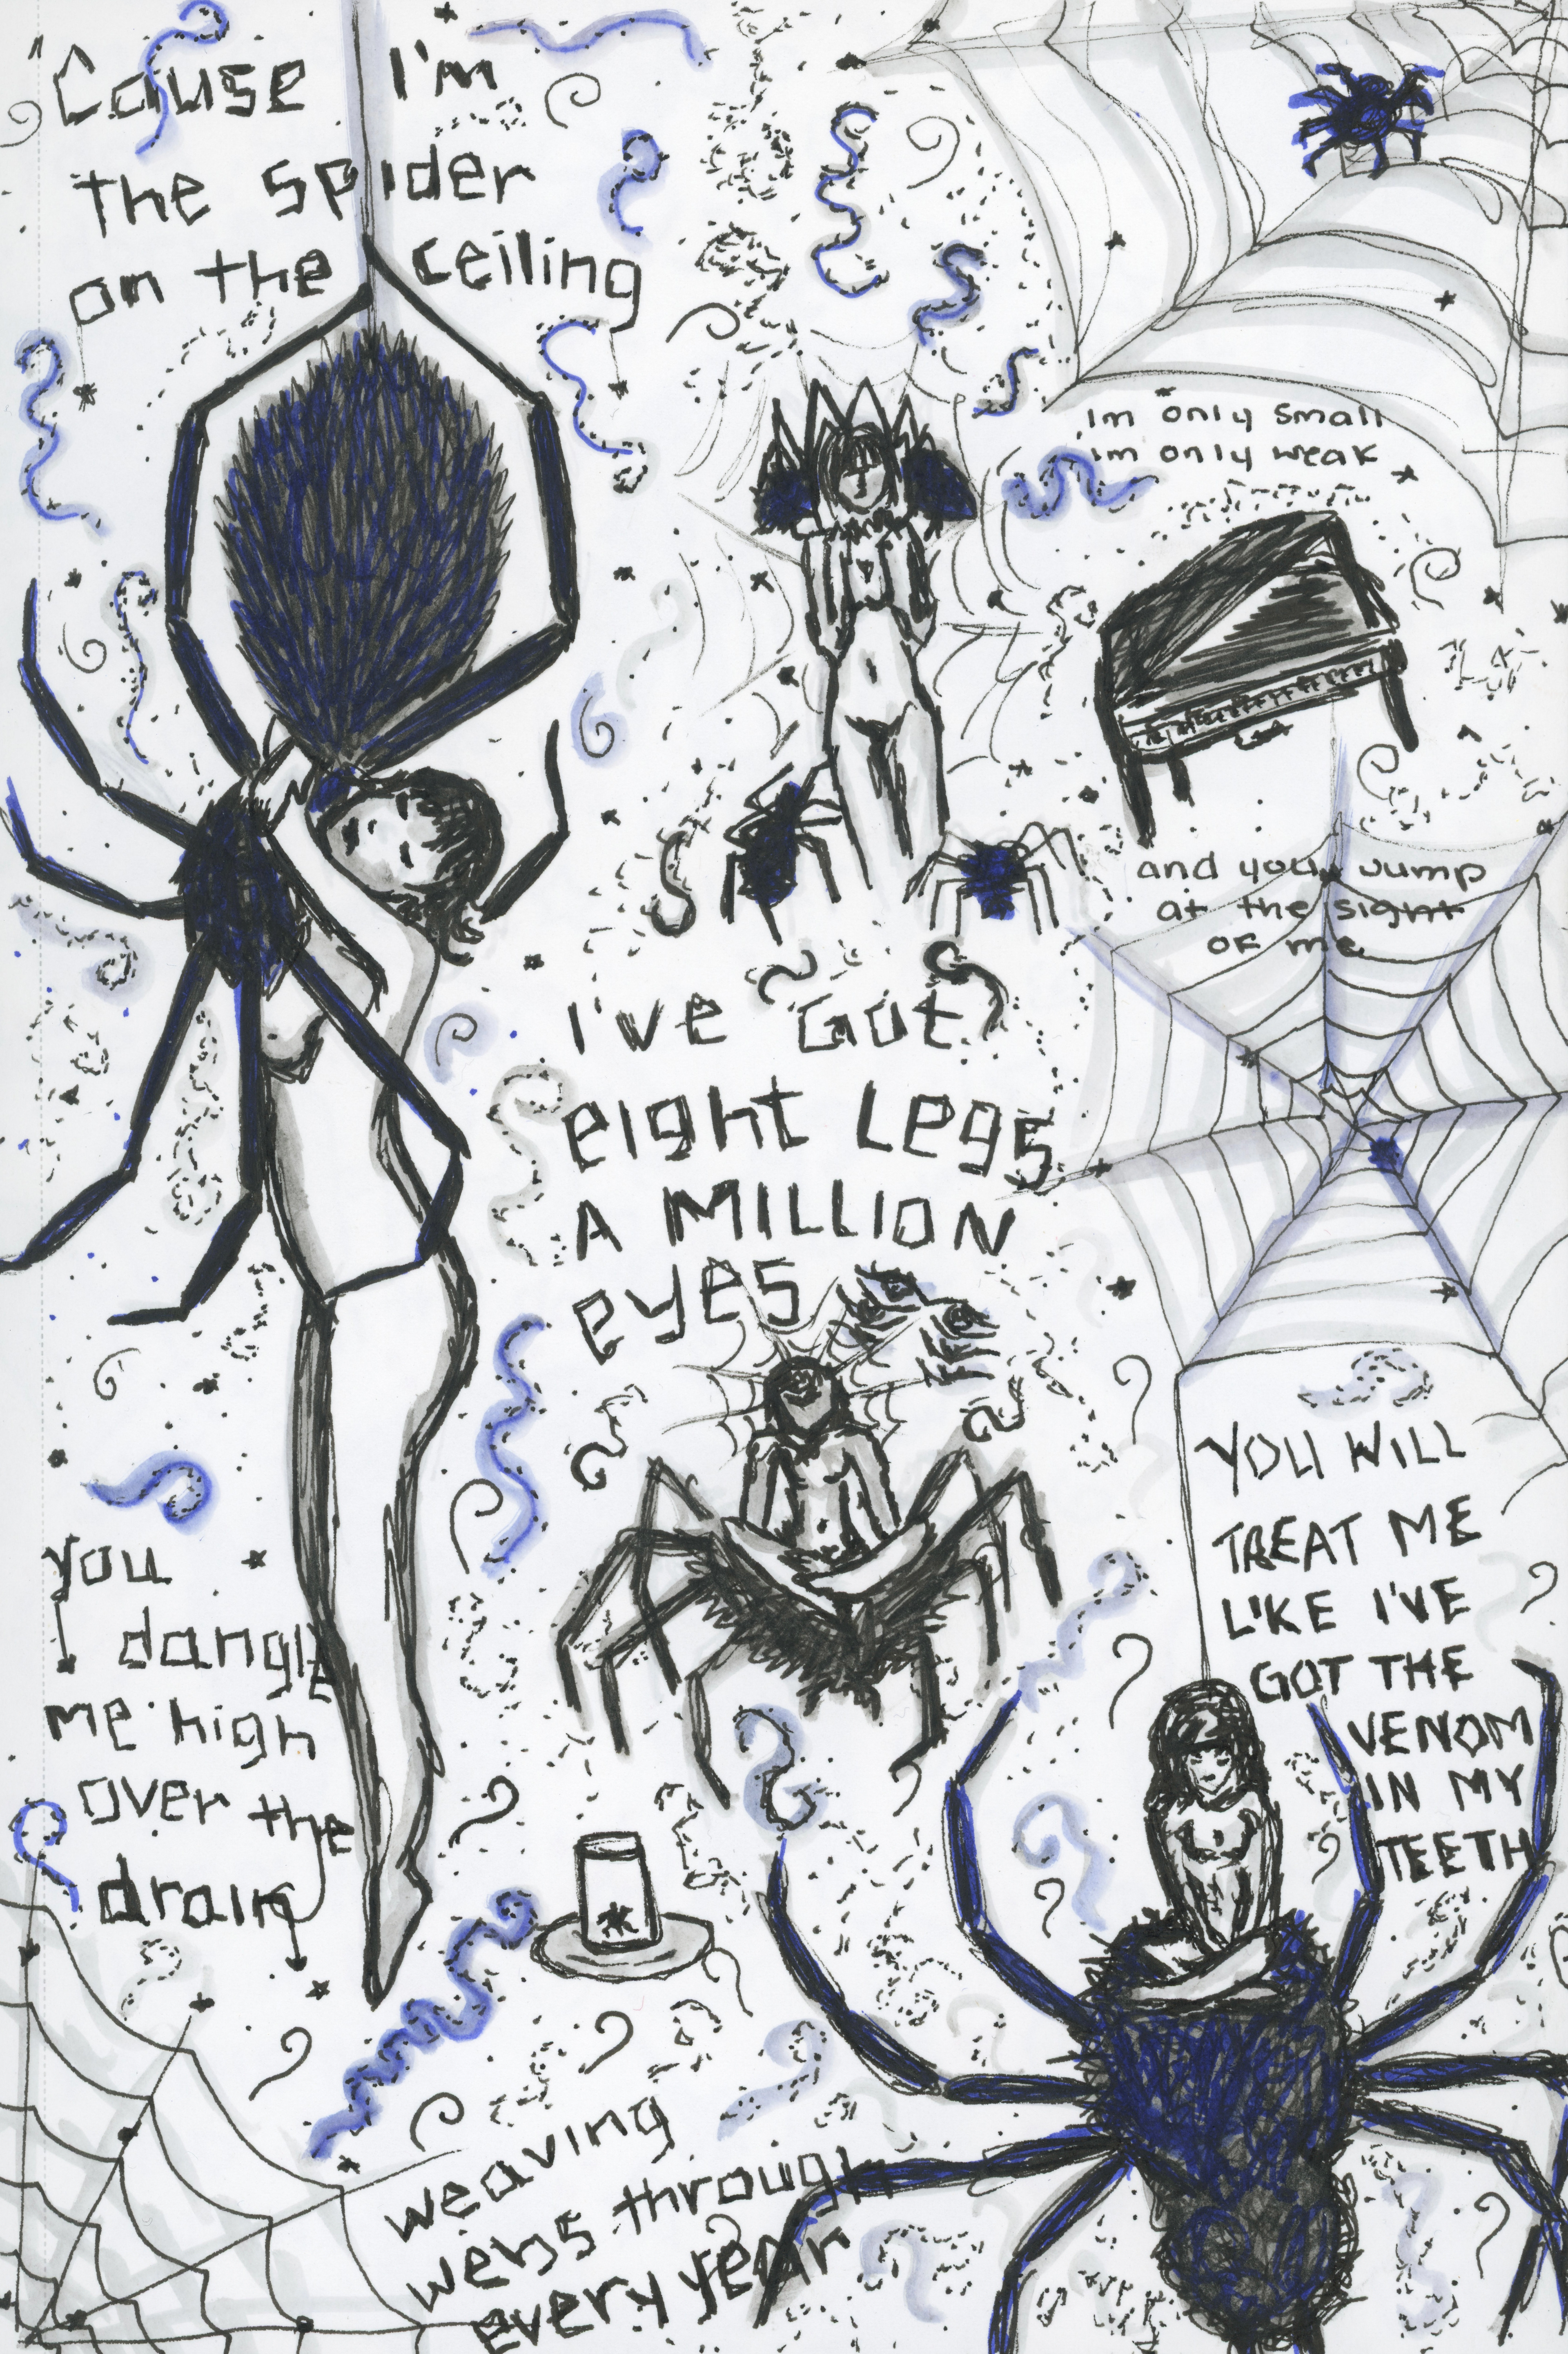 "Cause I'm
the spider
on the ceiling
Im only small
im only weak
and you jump
at the sight
of me
I've Got
eight legs
A MILLION
eyes
YOU WILL
TREAT ME
LIKE I'VE
GOT THE
VENOM
IN MY
TEETH
you
dangle
me high
over the
drain
weaving
webs through
every year